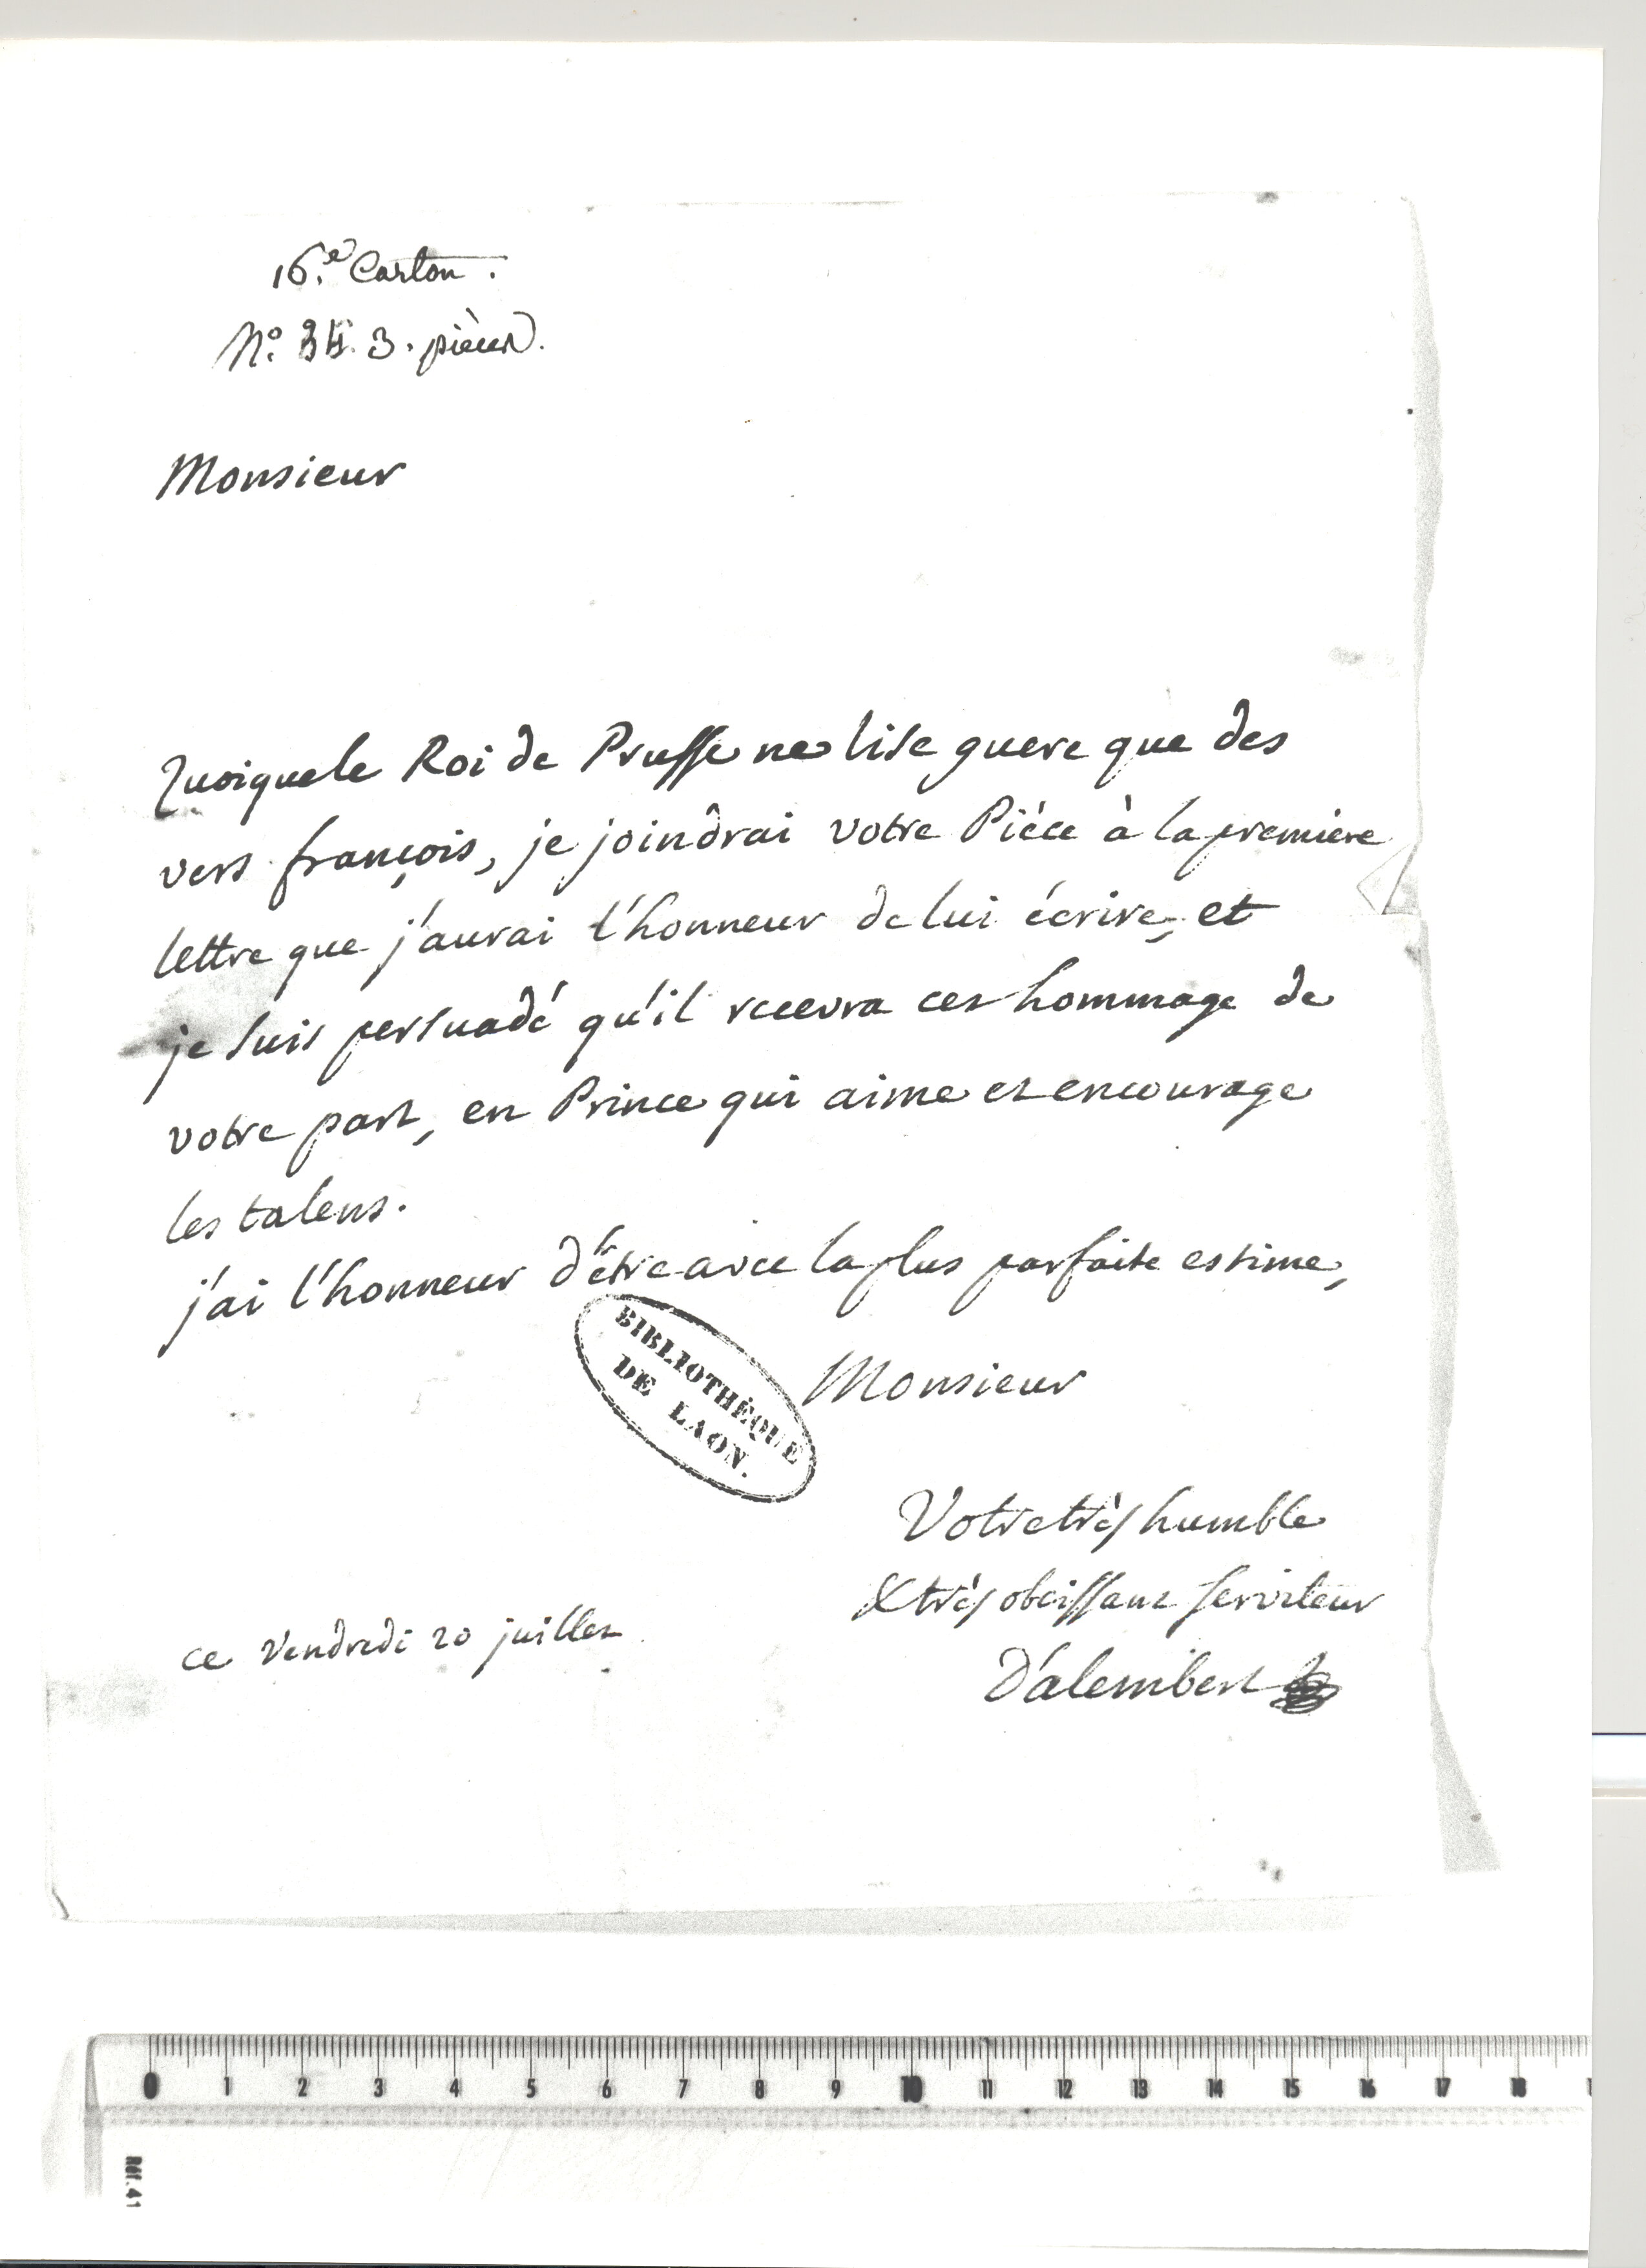 16.e Carton.
N.o 3. pièces.
Monsieur
Quoique le Roi de Prusse ne lise guere que des
vers françois, je joindrai votre Piéce à la premiere
lettre que j'aurai l'honneur de lui écrire, et
je suis persuadé qu'il recevra cet hommage de
votre part, en Prince qui aime et encourage
les talens.
j'ai l'honneur d'être avec la plus parfaite estime,
BIBLIOTHÈQUE
DE LAON.
Monsieur
Votre très humble
& très obeissant serviteur
D'alembert
ce Vendredi 20 juillet
0 1 2 3 4 5 6 7 8 9 10 11 12 13 14 15 16 17 18
Réf. 41